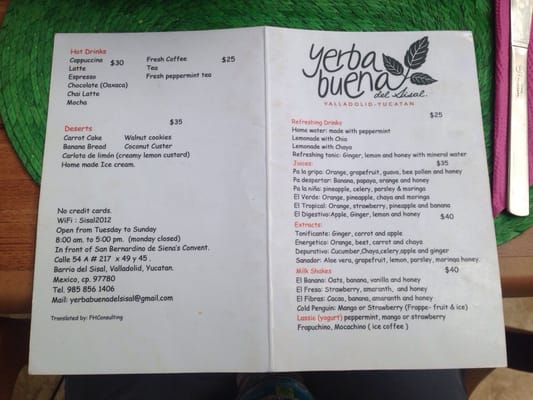 Hot Drinks
Cappuccino $30
Latte
Espresso
Chocolate (Oaxaca)
Chai Latte
Mocha
Fresh Coffee $25
Tea
Fresh peppermint tea
Deserts $35
Carrot Cake Walnut cookies
Banana Bread Coconut Custer
Carlota de limón (creamy lemon custard)
Home made Ice cream.
No credit cards.
WiFi : Sisal2012
Open from Tuesday to Sunday
8:00 am. to 5:00 pm. (monday closed)
In front of San Bernardino de Siena's Convent.
Calle 54 A # 217 x 49 y 45 .
Barrio del Sisal, Valladolid, Yucatan.
Mexico, cp. 97780
Tel. 985 856 1406
Mail: yerbabuenadelsisal@gmail.com
Translated by: FHConsulting
yerba
buena
del Sisal.
VALLADOLID-YUCATAN
$25
Refreshing Drinks
Home water: made with peppermint
Lemonade with Chia
Lemonade with Chaya
Refreshing tonic: Ginger, lemon and honey with mineral water
Juices: $35
Pa la gripa: Orange, grapefruit, guava, bee pollen and honey
Pa despertar: Banana, papaya, orange and honey
Pa la niña: pineapple, celery, parsley & moringa
El Verde: Orange, pineapple, chaya and moringa
El Tropical: Orange, strawberry, pineapple and banana
El Digestivo:Apple, Ginger, lemon and honey $40
Extracts:
Tonificante: Ginger, carrot and apple
Energetico: Orange, beet, carrot and chaya
Depurativo: Cucumber,Chaya,celery,apple and ginger
Sanador: Aloe vera, grapefruit, lemon, parsley, moringa honey.
Milk Shakes $40
El Banano: Oats, banana, vanilla and honey
El Fresa: Strawberry, amaranth, and honey
El Fibras: Cacao, banana, amaranth and honey
Cold Penguin: Mango or Strawberry (Frappe- fruit & ice)
Lassic (yogurt) peppermint, mango or strawberry
Frapuchino, Mocachino ( ice coffee )